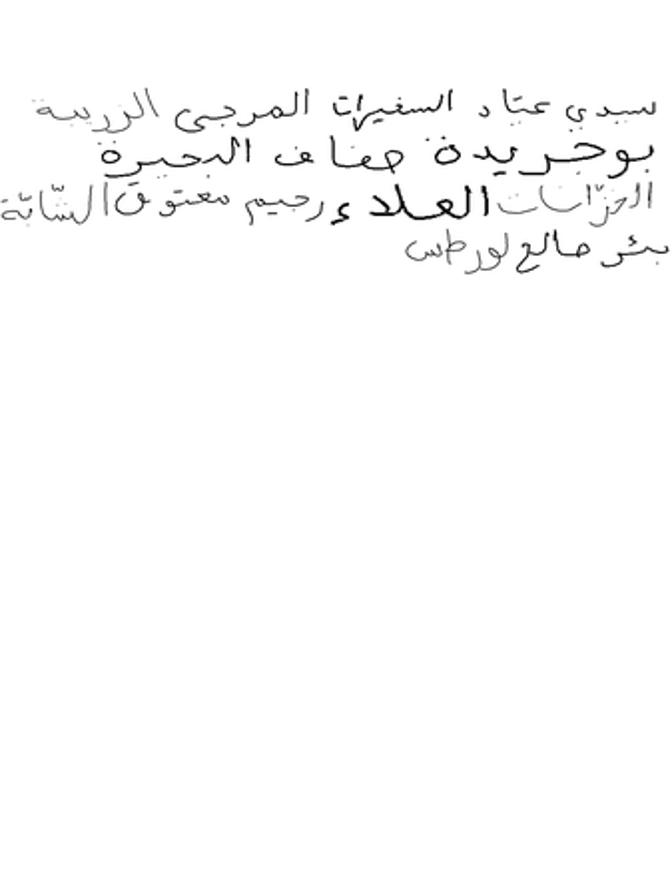 سيدي عيّاد السفيرات المرجى الزريبة
بوجريدة ضفاف البحيرة
الخزّانات العلاء رحيم معتوق الشّابّة
بئر صالح لورطس